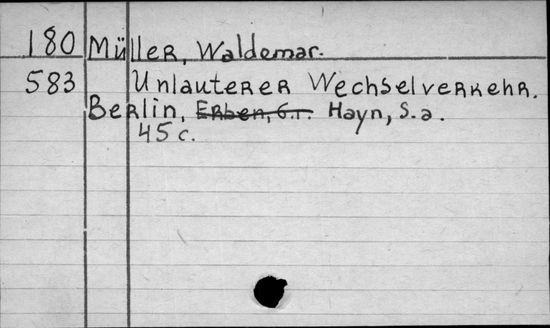 180 Müller, Waldemar.
583 Unlauterer Wechselverkehr.
Berlin, Erben, G.r. Hayn, S.a.
45 c.